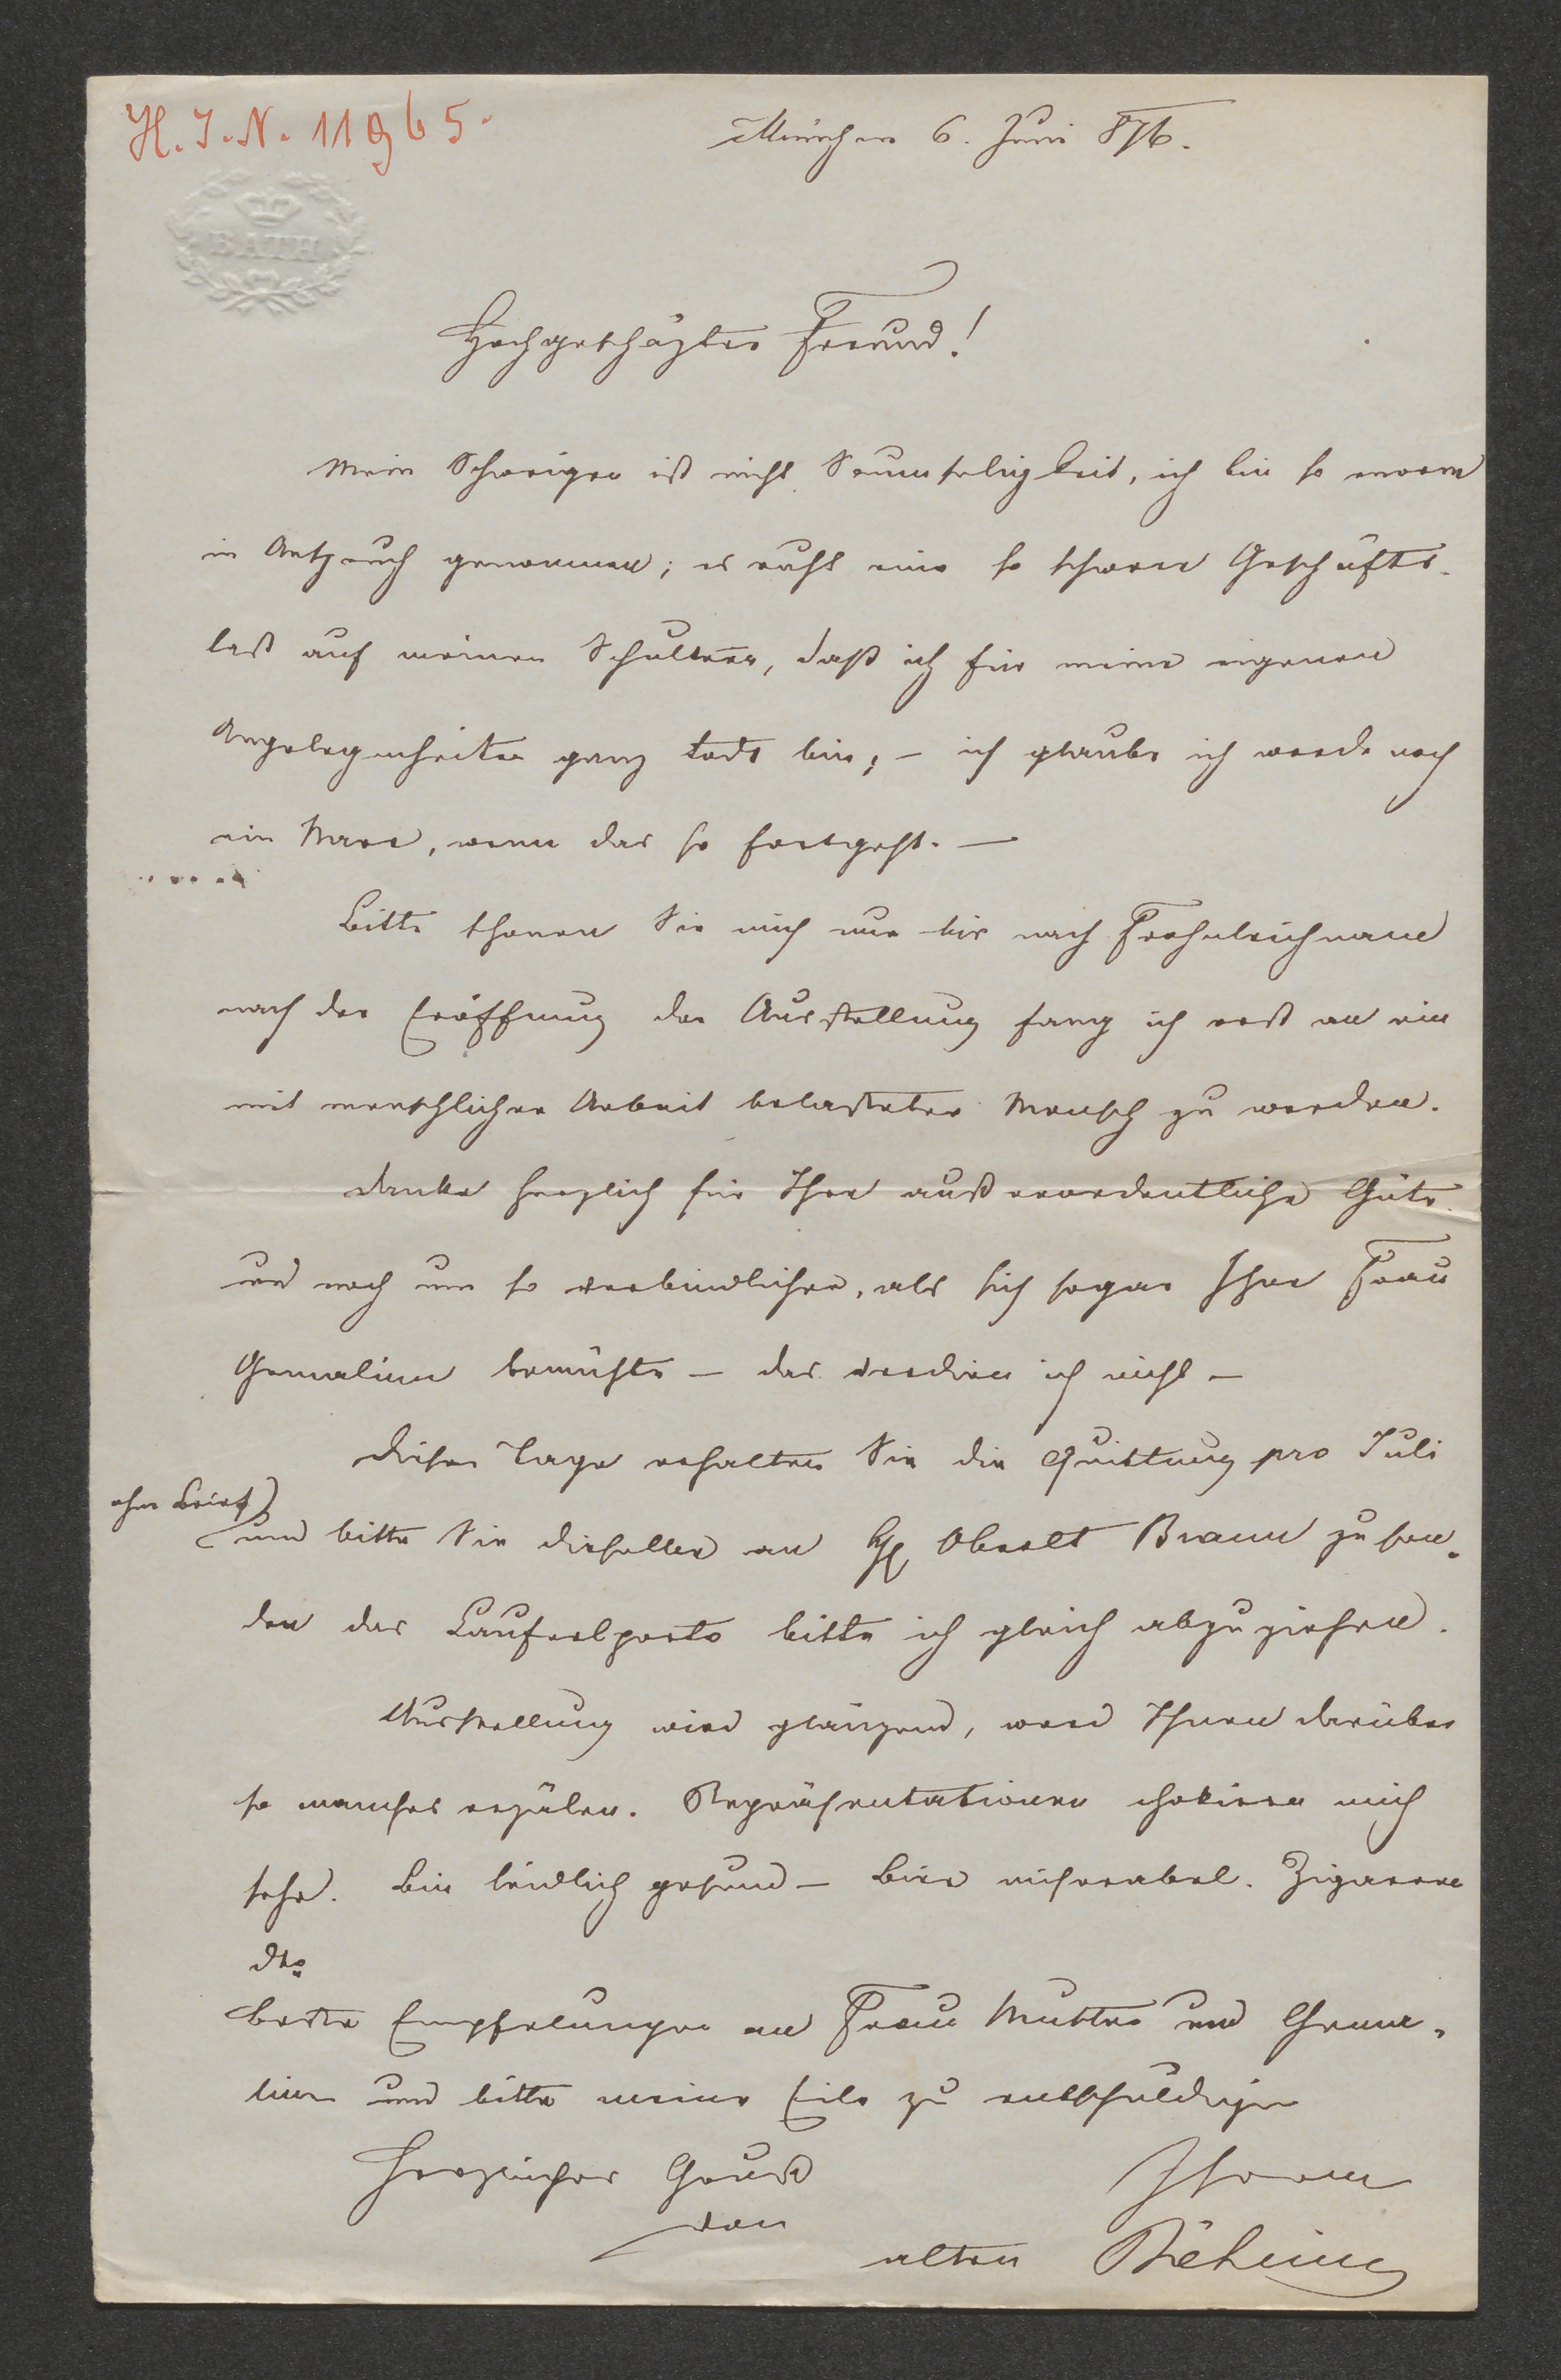 H.I.N. 11965.
München 6. Juni 876.
BATH
Hochgeschäzter Freund!
Mein Schweigen ist nicht Saumseligkeit, ich bin so enorm
in Anspruch genommen; es ruht eine so schwere Geschäfts-
last auf meinen Schultern, daß ich für meine eigenen
Angelegenheiten ganz todt bin; – ich glaube ich werde noch
ein Narr, wenn das so fortgeht. –
Bitte schonen Sie mich nur bis nach Frohnleichnam
nach der Eröffnung der Ausstellung fang ich erst an ein
mit menschlicher Arbeit belasteter Mensch zu werden.
danke herzlich für Ihre außerordentliche Güte
und noch um so verbindlicher, als sich sogar Ihre Frau
Gemalinn bemühte – das verdien ich nicht –
dieser Tage erhalten Sie die Quittung pro Juli
ohne Brief)
und bitte Sie dieselbe an H Oberlt Braun zu sen-
den das Lauferlporto bitte ich gleich abzuziehen.
Ausstellung wird glänzend, werd Ihnen darüber
so manches erzälen. Repräsentationen chokiren mich
sehr. Bin leidlich gesund – Bier miserabel. Zigarren
dto
beste Empfelungen an Frau Mutter und Gema-
linn und bitte meine Eile zu entschuldigen
Herzlicher Gruß Ihrem
von
alten